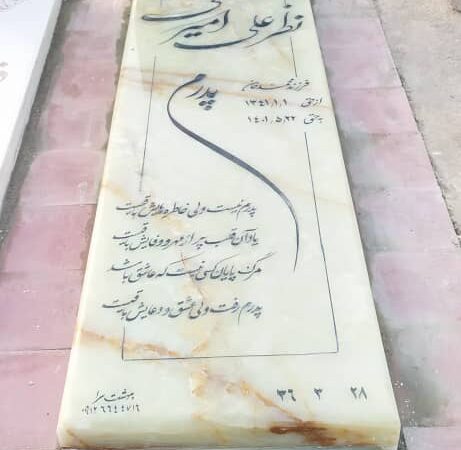 نظر علی امیری
پدرم
فرزند محمد خان
ازحق ۱۳۴۱،۱،۱
بحق ۱۴۰۱،۵،۲۲
پدرم نیست ولی خاطره هایش باقیست
یاد آن قلب پر از مهر و وفایش باقیست
مرگ پایان کسی نیست که عاشق باشد
پدرم رفت ولی عشق و دعایش باقیست
۳۶ ۳ ۲۸
بهشت سرا
۰۹۱۲۶۶۴۴۷۱۶